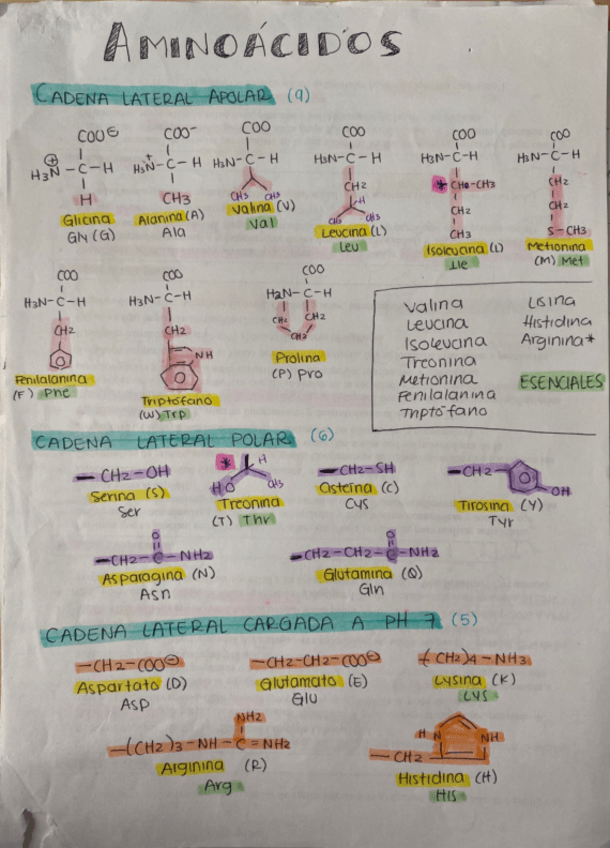 AMINOÁCIDOS
CADENA LATERAL APOLAR (9)
COO⊖
H₃N⊕–C–H
H
Glicina
Gly (G)
COO⁻
H₃N⁺–C–H
CH3
Alanina (A)
Ala
COO
H₃N–C–H
CH3 CH3
Valina (V)
Val
COO
H₃N–C–H
CH2
H
CH3 CH3
Leucina (L)
Leu
COO
H₃N–C–H
*CH–CH3
CH2
CH3
Isoleucina (L)
Ile
COO
H₃N–C–H
CH2
CH2
S–CH3
Metionina
(M) Met
COO
H₃N–C–H
CH2
Fenilalanina
(F) Phe
COO
H₃N–C–H
CH2
NH
Triptófano
(W) Trp
COO
H₂N–C–H
CH2 CH2
CH2
Prolina
(P) Pro
Valina
Leucina
Isoleucina
Treonina
Metionina
Fenilalanina
Triptófano
Lisina
Histidina
Arginina*
ESENCIALES
CADENA LATERAL POLAR (6)
–CH2–OH
Serina (S)
Ser
* H
HO CH3
Treonina
(T) Thr
–CH2–SH
Cisteína (C)
Cys
–CH2– OH
Tirosina (Y)
Tyr
O
–CH2–C–NH2
Asparagina (N)
Asn
O
–CH2–CH2–C–NH2
Glutamina (Q)
Gln
CADENA LATERAL CARGADA A PH 7 (5)
–CH2–COO⊖
Aspartato (D)
Asp
–CH2–CH2–COO⊖
Glutamato (E)
Glu
(CH2)4–NH3
Lysina (K)
Lys
NH2
–(CH2)3–NH–C=NH2
Arginina (R)
Arg
H N NH
–CH2
Histidina (H)
His